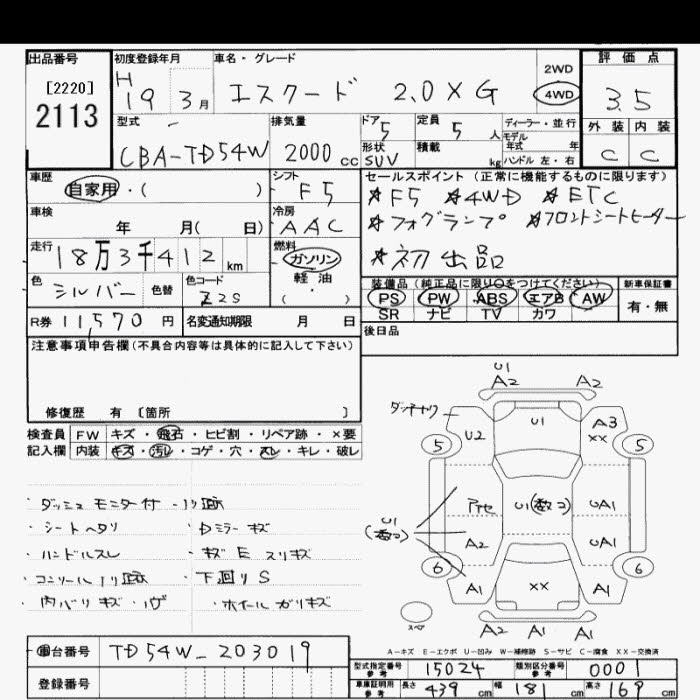 出品番号 初度登録年月 車名・グレード 評価点
[2220]
2113
H 19 3月 エスクード 2.0 XG 2WD 4WD 3.5
型式 排気量 ドア 定員 ディーラー・並行 外装 内装
CBA-TD54W 2000cc 5 5人 モデル年式 年
形状 SUV 積載 kg ハンドル 左・右 C C
車歴 シフト セールスポイント(正常に機能するものに限ります)
自家用・( ) F5 ★F5 ★4WD ★ETC
車検 冷房 ★フォグランプ ★フロントシートヒーター
年 月( 日) AAC
走行 燃料 ★初出品
18万3千412km ガソリン
軽油
色 色替 色コード ( )
シルバー Z2S
装備品(純正品に限り○をつけてください) 新車保証書
PS PW ABS エアB AW 有・無
SR ナビ TV カワ
R券 11,570円 名変通知期限 月 日
後日品
注意事項申告欄(不具合内容等は具体的に記入して下さい)
修復歴 有 〔箇所 〕
検査員 FW キズ・飛石・ヒビ割・リペア跡・×要
記入欄 内装 キズ・汚レ・コゲ・穴・スレ・キレ・破レ
・ダッシュモニター付・ノリ跡
・シートヘタリ ・Dミラーキズ
・ハンドルスレ ・キズEスリキズ
・コンソールノリ跡 ・下回りS
・内バリキズ・ ・ホイールガリキズ
U1
A2 A2
U2 U1 A3
XX
5 5
U1(数コ) アトセ U1(数コ) UA1
A2 UA1
6 6
A1 XX A1
スペア A2 A1 A1
A-キズ E-エクボ U-凹み W-補修跡 S-サビ C-腐食 XX-交換済
車台番号 TD54W-203019
登録番号
型式指定番号 参考 15024 類別区分番号 参考 0001
車庫証明用 参考 長さ 439cm 幅 181cm 高さ 169cm